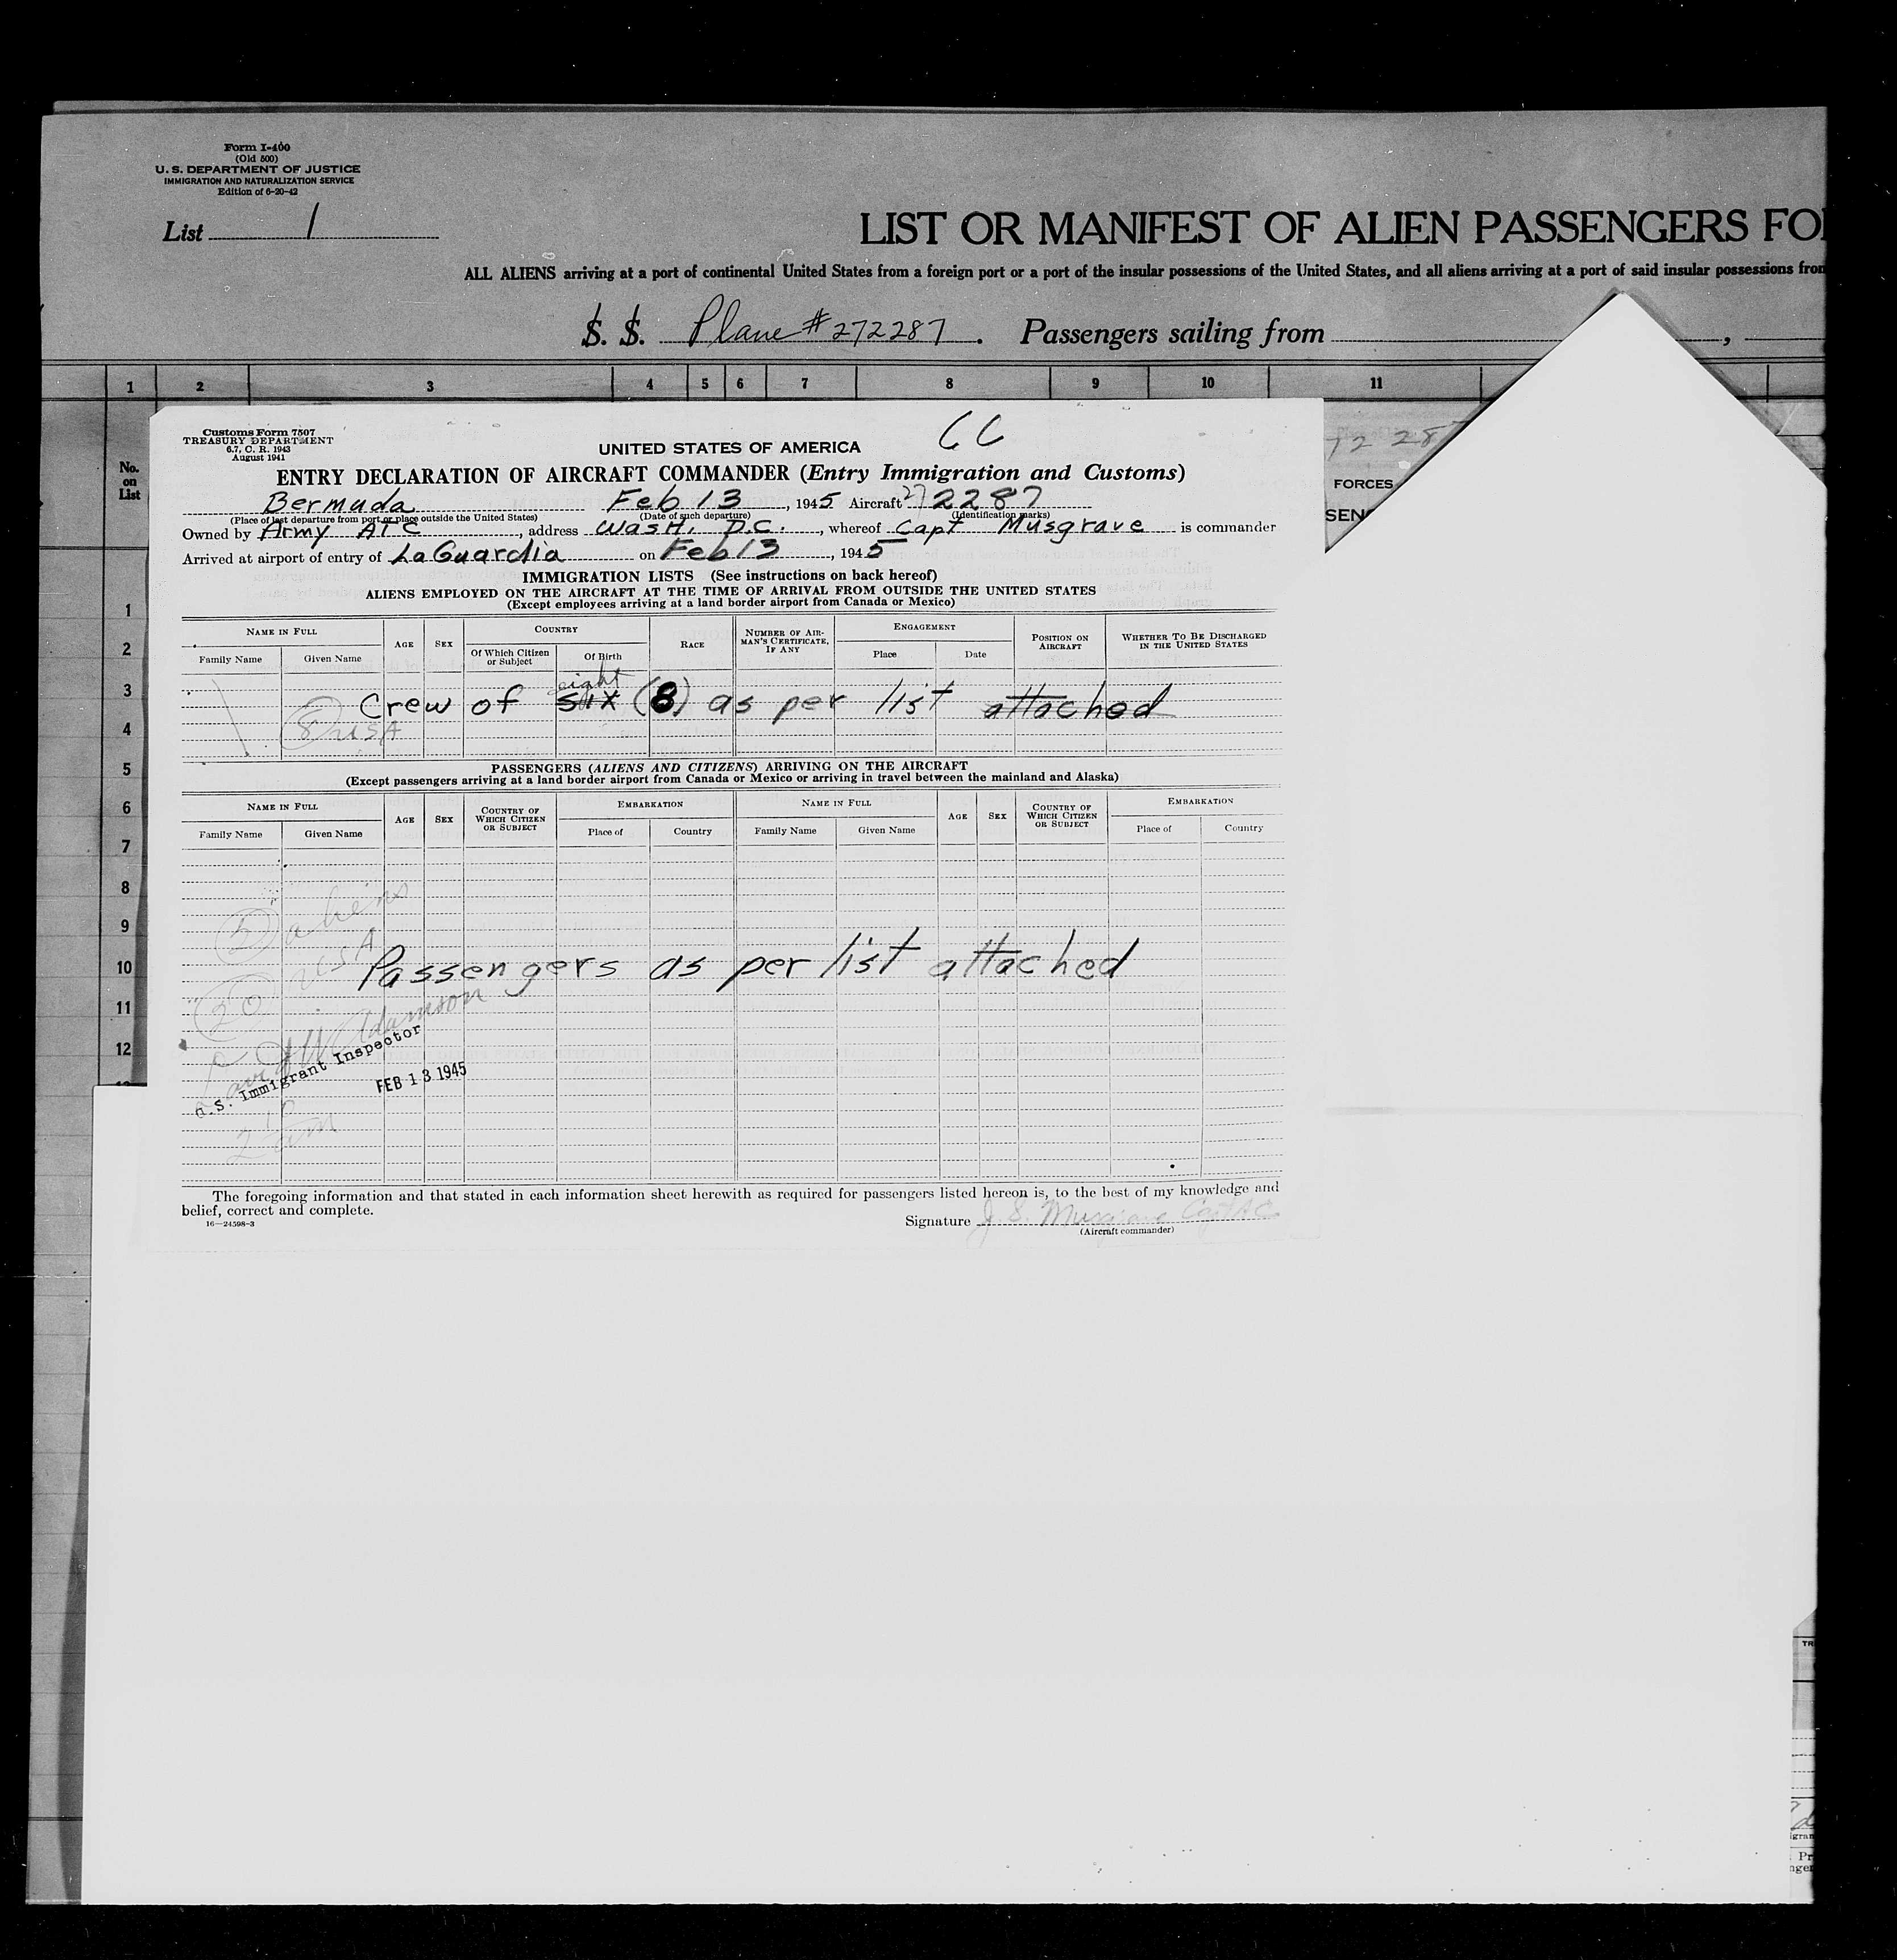 Form I-400
(Old 500)
U. S. DEPARTMENT OF JUSTICE
IMMIGRATION AND NATURALIZATION SERVICE
Edition of 6-20-42
List 1
LIST OR MANIFEST OF ALIEN PASSENGERS FO
ALL ALIENS arriving at a port of continental United States from a foreign port or a port of the insular possessions of the United States, and all aliens arriving at a port of said insular possessions from
S. S. Plane # 272287. Passengers sailing from ,
1 2 3 4 5 6 7 8 9 10 11
No. on List
72 287
FORCES
SEN
Customs Form 7507
TREASURY DEPARTMENT
6.7, C. R. 1943
August 1941
CC
UNITED STATES OF AMERICA
ENTRY DECLARATION OF AIRCRAFT COMMANDER (Entry Immigration and Customs)
Bermuda Feb 13, 1945 Aircraft 272287
(Place of last departure from port or place outside the United States) (Date of such departure) (Identification marks)
Owned by Army ATC, address Wash. D.C., whereof Capt Musgrave is commander
Arrived at airport of entry of LaGuardia on Feb 13, 1945
IMMIGRATION LISTS (See instructions on back hereof)
ALIENS EMPLOYED ON THE AIRCRAFT AT THE TIME OF ARRIVAL FROM OUTSIDE THE UNITED STATES
(Except employees arriving at a land border airport from Canada or Mexico)
NAME IN FULL AGE SEX COUNTRY RACE NUMBER OF AIRMAN'S CERTIFICATE, IF ANY ENGAGEMENT POSITION ON AIRCRAFT WHETHER TO BE DISCHARGED IN THE UNITED STATES
Family Name Given Name Of Which Citizen or Subject Of Birth Place Date
eight
Crew of six (8) as per list attached
8 USA
PASSENGERS (ALIENS AND CITIZENS) ARRIVING ON THE AIRCRAFT
(Except passengers arriving at a land border airport from Canada or Mexico or arriving in travel between the mainland and Alaska)
NAME IN FULL AGE SEX COUNTRY OF WHICH CITIZEN OR SUBJECT EMBARKATION NAME IN FULL AGE SEX COUNTRY OF WHICH CITIZEN OR SUBJECT EMBARKATION
Family Name Given Name Place of Country Family Name Given Name Place of Country
5 aliens
20 USA
Passengers as per list attached
David W Adamson
U.S. Immigrant Inspector
FEB 13 1945
The foregoing information and that stated in each information sheet herewith as required for passengers listed hereon is, to the best of my knowledge and
belief, correct and complete.
16—24598-3
Signature J. S. Musgrave Capt AC
(Aircraft commander)
1
2
3
4
5
6
7
8
9
10
11
12